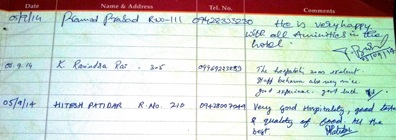 Date Name & Address Tel. No. Comments
05/9/14 Pramod Prasad R.NO-111 He is very happy
with all Aminities in the
hotel.
05.9.14 K. Ravindra Rao. 305 09969223083 The hospitality was excellent
Staff behavior also very nice.
good experience. good luck
05/9/14 HITESH PATIDAR R.NO. 210 09428007049 Very good Hospitality, good taste
& quality of food All the
best